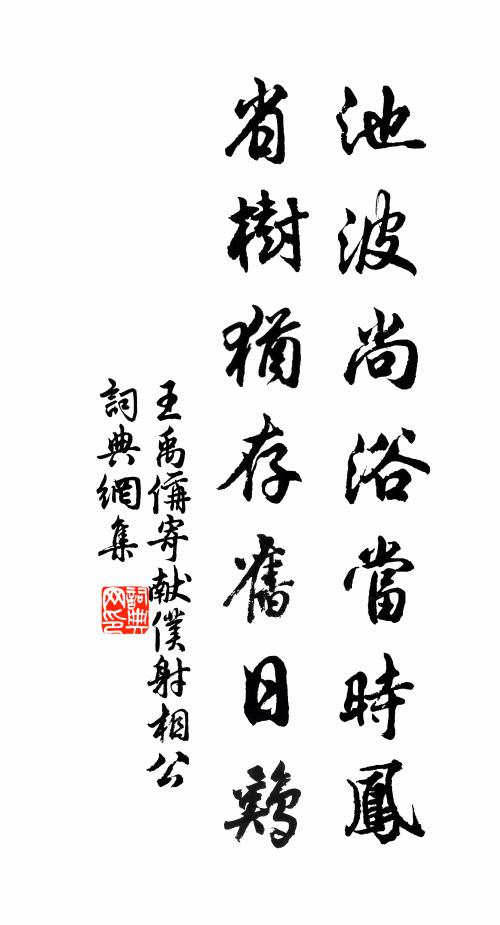 池波尚浴當時鳳
省樹猶存舊日鷄
王禹偁寄献僕射相公
詞典網集
詞典网印